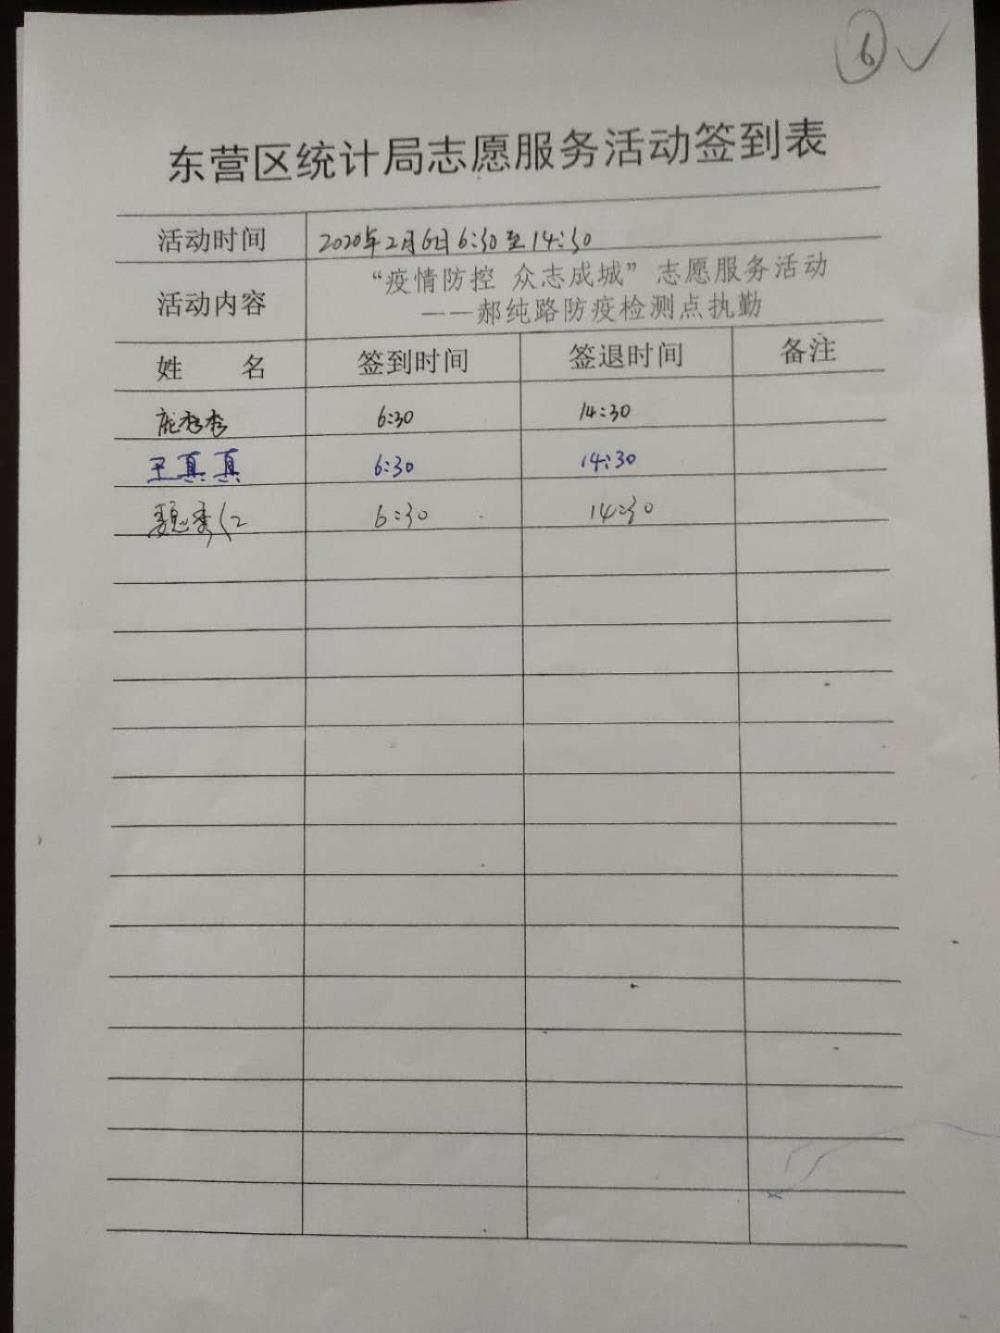 6
东营区统计局志愿服务活动签到表
活动时间 2020年2月6日6:30至14:30
活动内容 “疫情防控 众志成城”志愿服务活动
——郝纯路防疫检测点执勤
姓 名 签到时间 签退时间 备注
庞秀秀 6:30 14:30
王真真 6:30 14:30
魏秀红 6:30 14:30